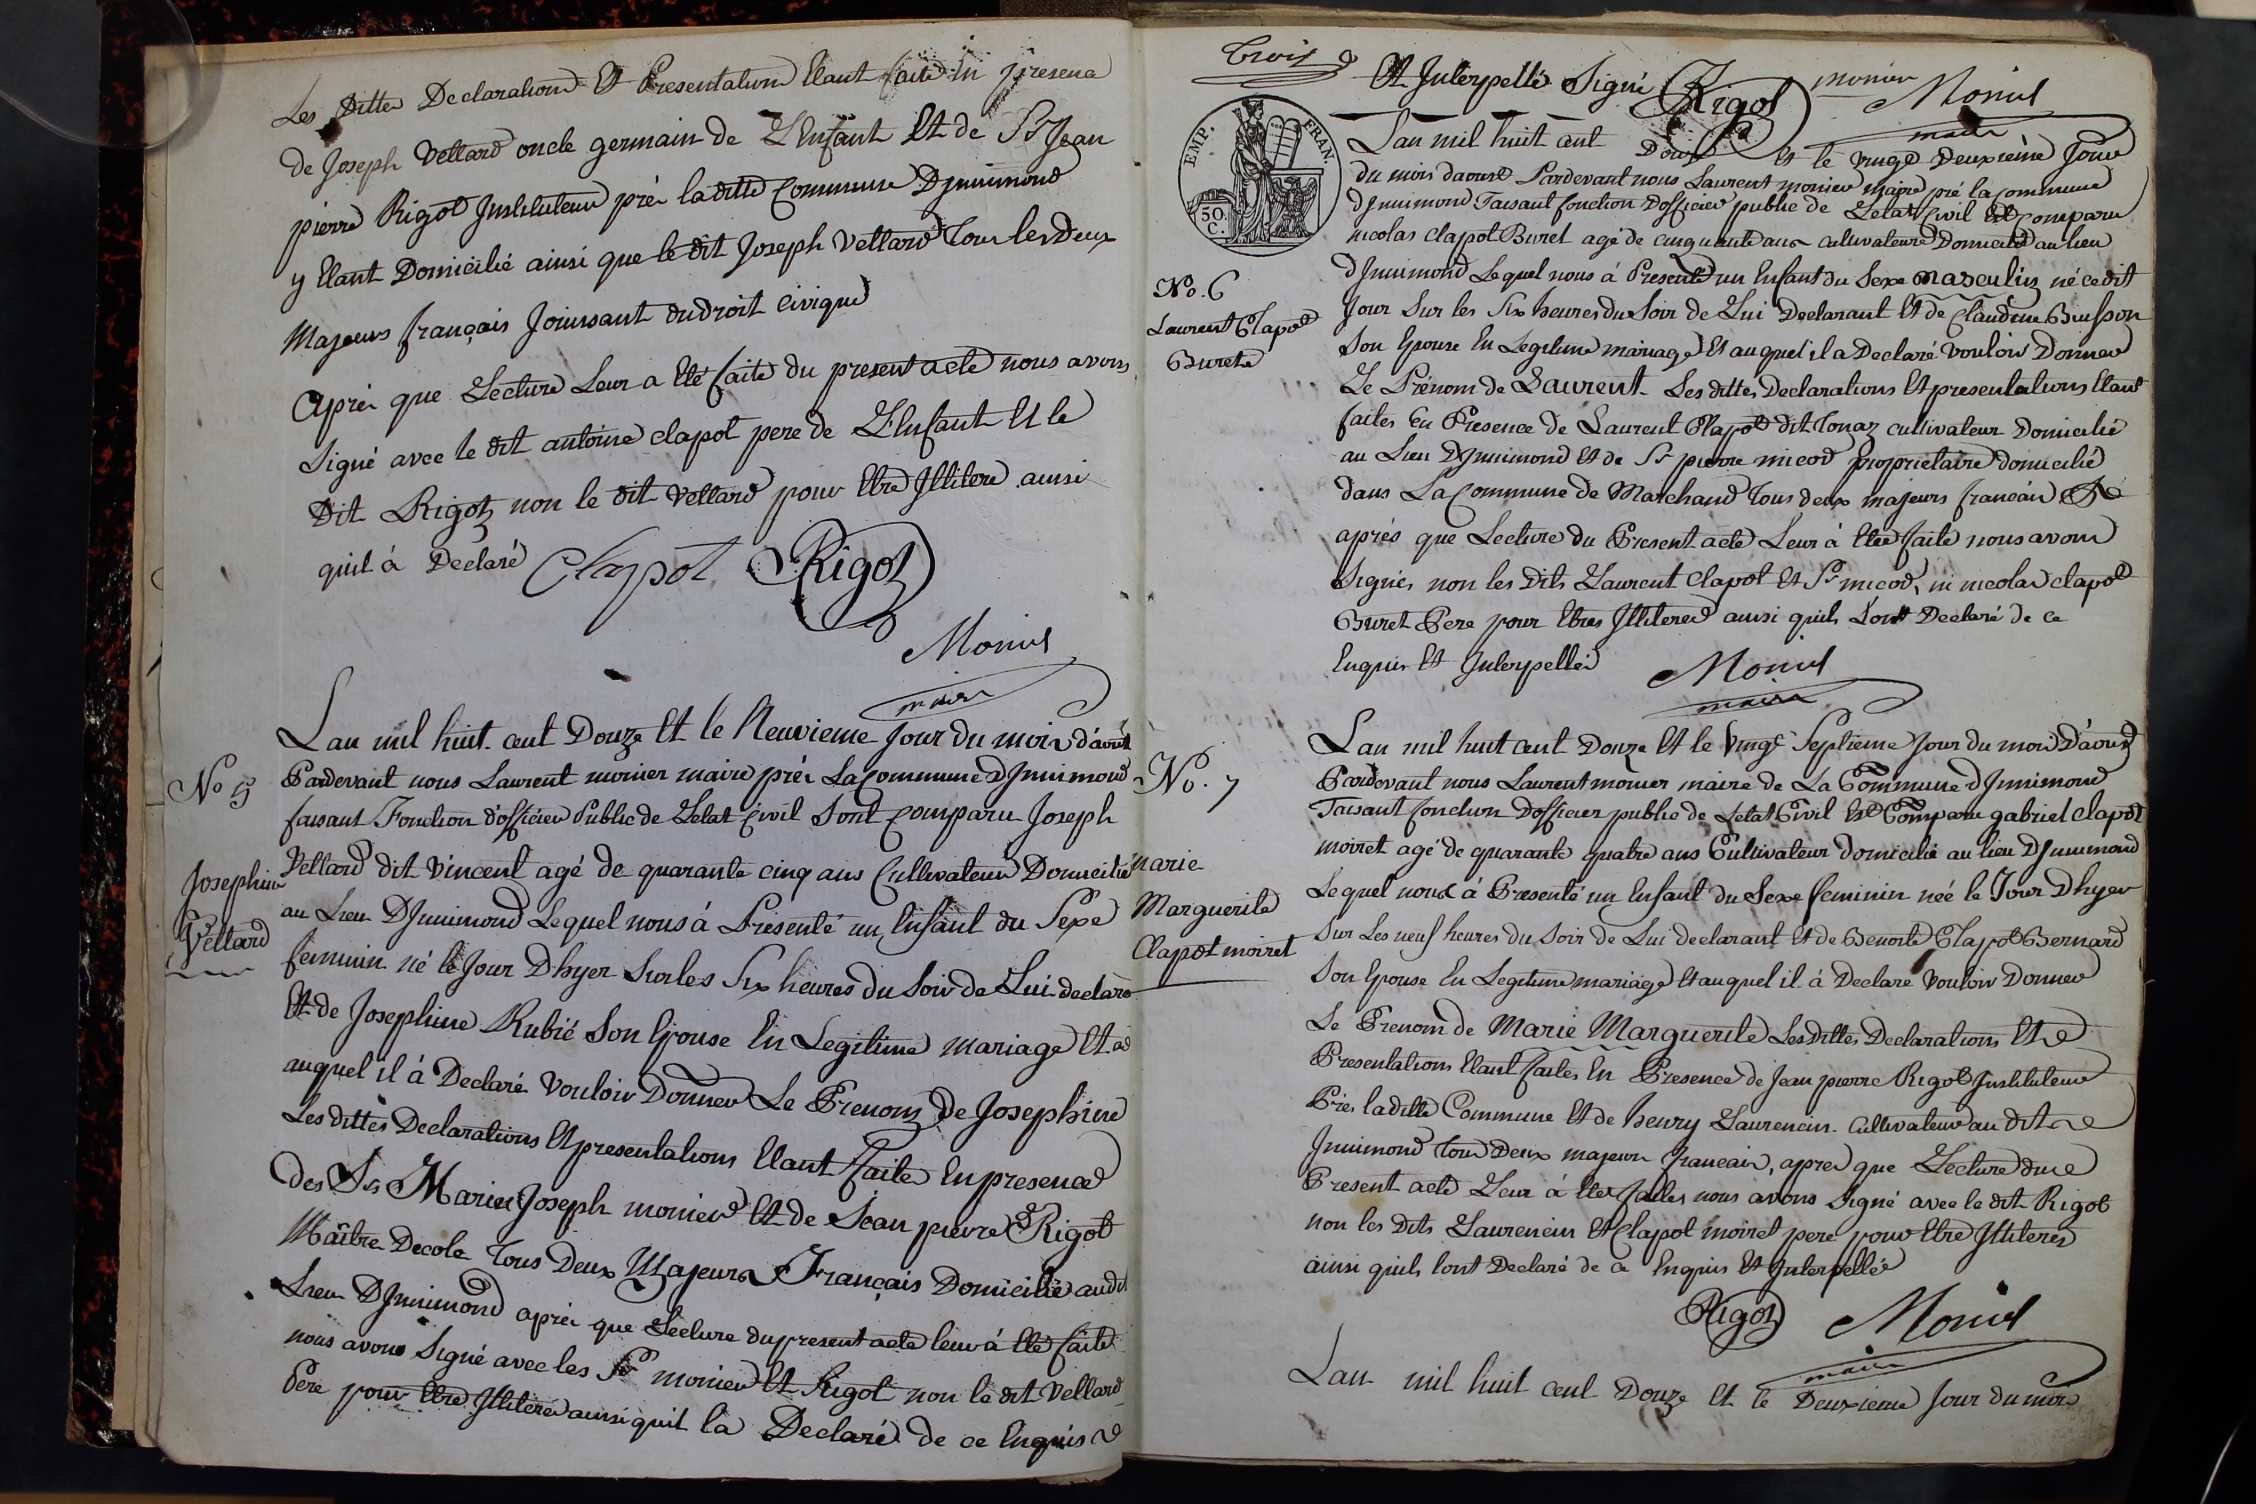 Les Dittes Declarations Et Presentations Etant faite En presence
de Joseph Vellard oncle germain de L'Enfant Et de Sr Jean
pierre Rigot Instituteur près la ditte Commune D'Innimond
y Etant Domicilié ainsi que le dit Joseph Vellard Tous les Deux
Majeurs français Jouissant du droit civique
Après que Lecture Leur a Eté faite du present acte nous avons
Signé avec le dit antoine clapot pere de L'Enfant Et le
Dit Rigot non le dit Vellard pour Etre Illitere ainsi
quil à Declaré Clapot Rigot
Monier
maire
Lan mil huit cent Douze Et le Neuvieme Jour du mois d'avout
No 5
Pardevant nous Laurent monier maire près La Commune D'Innimond
faisant Fonction d'officier Public de Letat Civil Sont Comparu Joseph
Vellard dit Vincent agé de quarante cinq ans Cultivateur Domicilié
Josephine
Vellard
au Lieu D'Innimond Lequel nous à Présenté un Enfant du Sexe
feminin né le Jour D'hyer Sur les Six heures du Soir de Lui declarant
Et de Josephine Rubié Son Epouse En Legitime mariage Et
auquel il à Declaré Vouloir Donner Le Prenom de Josephine
Les dittes Declarations Et presentations Etant Faite En presence
des Srs Marie Joseph monier Et de Jean pierre Rigot
Maître Decole Tous Deux Majeurs Français Domicilié au dit
Lieu D'Innimond après que Lecture du present acte leur à Eté faite
nous avons Signé avec les Sr monier Et Rigot non le dit Vellard
Pere pour Etre Illitere ainsi quil la Declaré de ce Enquis
Trois
Et Interpellé Signé Rigot monier Monier
maire
EMP. FRAN.
50. C.
Lan mil huit cent Douze Et le Vingt Deuxième Jour
du mois daoust Pardevant nous Laurent monier maire pré la Commune
D'Innimond Faisant fonction D'officier public de Letat Civil Est Comparu
nicolas Clapot Buret agé de cinquante ans cultivateur Domicilié au lieu
D'Innimond Lequel nous à Presenté un Enfant du Sexe masculin né cedit
No. 6
Laurent Clapot
Buret
Jour Sur les Six heures du Soir de Lui Declarant Et de Claudine Buisson
Son Epouse En Legitime mariage Et auquel il a Declaré Vouloir Donner
Le Prénom de Laurent. Les dittes Declarations Et presentations Etant
faites En Presence de Laurent Clapot dit Tonaz cultivateur Domicilié
au Lieu D'Innimond Et de Sr pierre micod proprietaire domicilié
dans La Commune de Marchand Tous deux majeurs francais Et
après que Lecture du Present acte Leur à Etée faite nous avons
Signés, non les Dits Laurent Clapot Et Sr micod, ni nicolas clapot
Buret Pere pour Etres Illiteres ainsi quils L'ont Declaré de ce
Enquis Et Interpellés Monier
maire
Lan mil huit cent Douze Et le Vingt Septieme Jour du mois D'avoust
No. 7
Pardevant nous Laurent monier maire de La Commune D'Innimond
Faisant fonction D'officier public de Letat Civil Est Comparu gabriel Clapot
moiret agé de quarante quatre ans Cultivateur domicilié au lieu D'Innimond
marie
Marguerite
Clapot moiret
Lequel nous à Presenté un Enfant du Sexe feminin née le Jour D'hyer
Sur Les neuf heures du Soir de Lui declarant Et de Benoite Clapot Bernard
Son Epouse En Legitime mariage Et auquel il à Declaré Vouloir Donner
Le Prenom de Marie Marguerite Les dittes Declarations Et
Presentations Etant faites En Presence de Jean pierre Rigot Instituteur
Près ladite Commune Et de henry Laurencin Cultivateur au dit
Innimond Tous Deux majeurs francais, apres que Lecture du
Present acte Leur à Etee faites nous avons Signé avec le dit Rigot
non les Dits Laurencin Et Clapot moiret pere pour Etre Illiteres
ainsi quils lont Declaré de ce Enquis Et Interpellée
Rigot Monier
maire
Lan mil huit cent Douze Et le Deuxieme Jour du mois